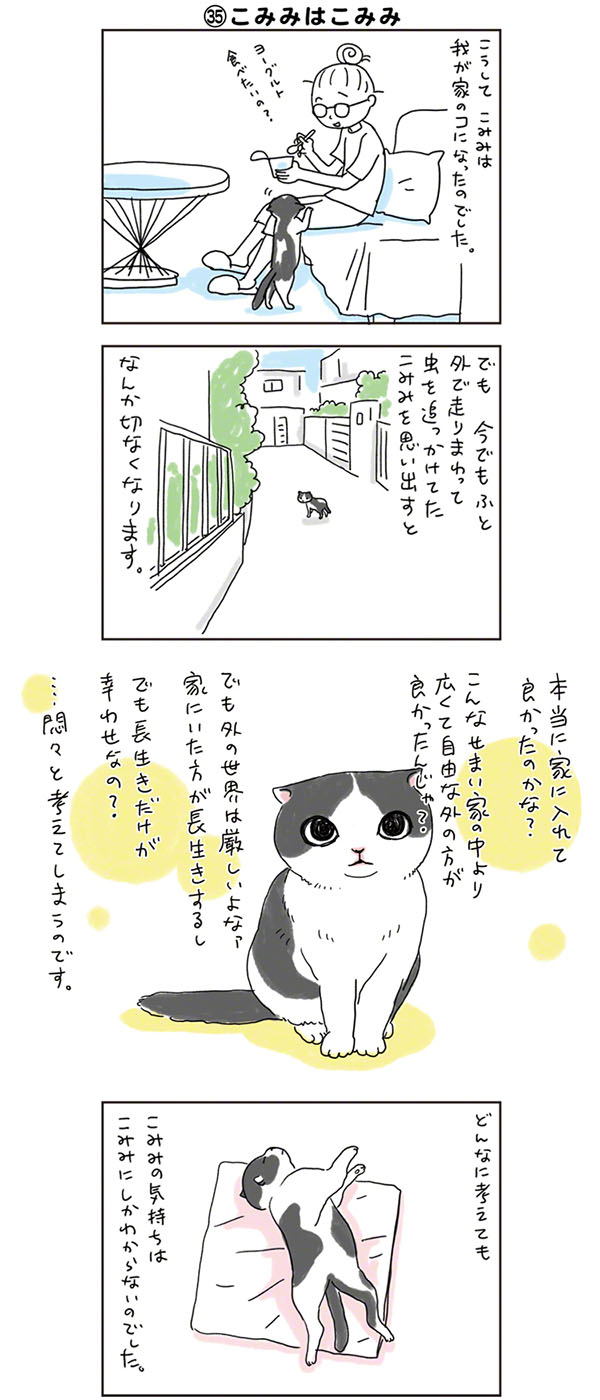 ㉟こみみはこみみ
こうして こみみは
我が家のコになったのでした。
ヨーグルト
食べたいの?
でも 今でもふと
外で走りまわって
虫を追っかけてた
こみみを思い出すと
なんか切なくなります。
本当に家に入れて
良かったのかな?
こんなせまい家の中より
広くて自由な外の方が
良かったんじゃ?
でも外の世界は厳しいよなァ
家にいた方が長生きするし
でも長生きだけが
幸わせなの?
…悶々と考えてしまうのです。
どんなに考えても
こみみの気持ちは
こみみにしかわからないのでした。